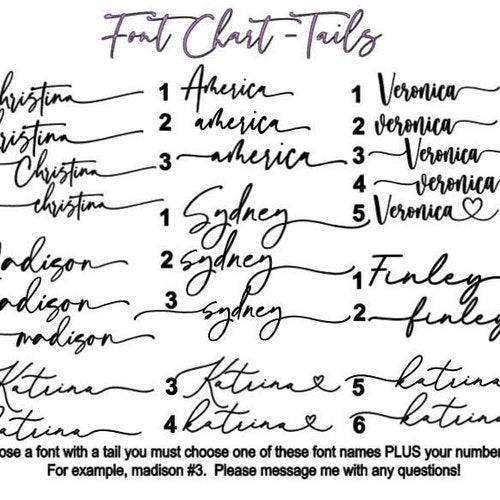 Font Chart - Tails
Christina 1 America 1 Veronica
Christina 2 america 2 veronica
Christina 3 america 3 Veronica
christina 4 veronica
1 Sydney 5 Veronica
Madison 2 sydney 1 Finley
Madison 3 sydney 2 finley
madison
Katrina 3 Katrina 5 katrina
katrina 4 katrina 6 katrina
ose a font with a tail you must choose one of these font names PLUS your number
For example, madison #3. Please message me with any questions!